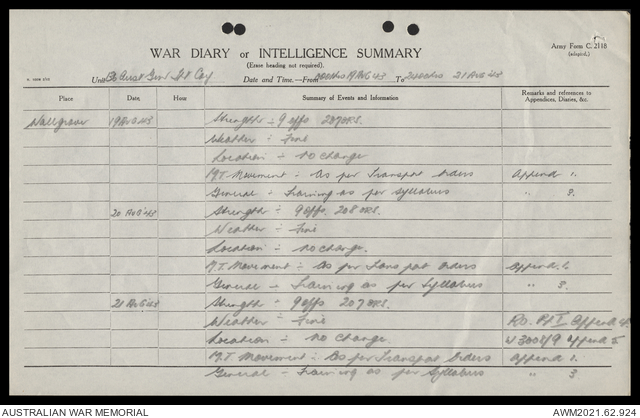 Army Form C. 2118
(adapted.)
WAR DIARY or INTELLIGENCE SUMMARY
(Erase heading not required).
Unit Aust Gen Tpt Coy Date and Time.—From 0001hrs 19 AUG 43 To 2400hrs 21 AUG 43
Place Date. Hour Summary of Events and Information Remarks and references to Appendices, Diaries, &c.
Wallgrove 19 AUG 43 Strength ÷ 9 offs 207 ORS.
Weather ÷ Fine
Location ÷ no change
M.T. Movement ÷ As per Transport Orders Append 1.
General ÷ Training as per Syllabus " 3.
20 AUG 43 Strength ÷ 9 offs. 208 ORS.
Weather ÷ Fine
Location ÷ no change.
M.T. Movement ÷ As per Transport Orders Append 1.
General ÷ Training as per Syllabus " 3.
21 AUG 43 Strength ÷ 9 offs 207 ORS.
Weather ÷ Fine Ro. Pt I Append 4.
Location ÷ no change. W3008/9 Append 5
M.T. Movement ÷ As per Transport Orders Append 1.
General ÷ Training as per Syllabus " 3.
AUSTRALIAN WAR MEMORIAL AWM2021.62.924